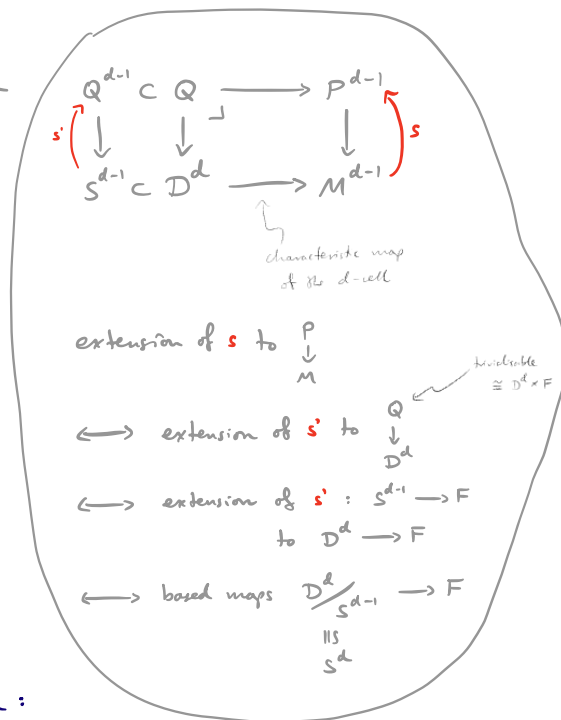 Q^{d-1} ⊂ Q ⟶ P^{d-1}
s' ↓ ↓ ⌟ ↓ s
S^{d-1} ⊂ D^d ⟶ M^{d-1}
characteristic map
of the d-cell
extension of s to P ↓ M
trivialisable
≅ D^d × F
⟷ extension of s' to Q ↓ D^d
⟷ extension of s' : S^{d-1} ⟶ F
to D^d ⟶ F
⟷ based maps D^d/S^{d-1} ⟶ F
≅
S^d
: